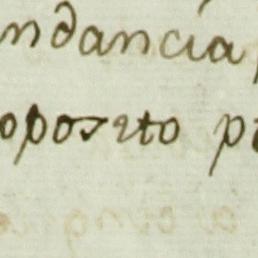 ndancia
oposito p